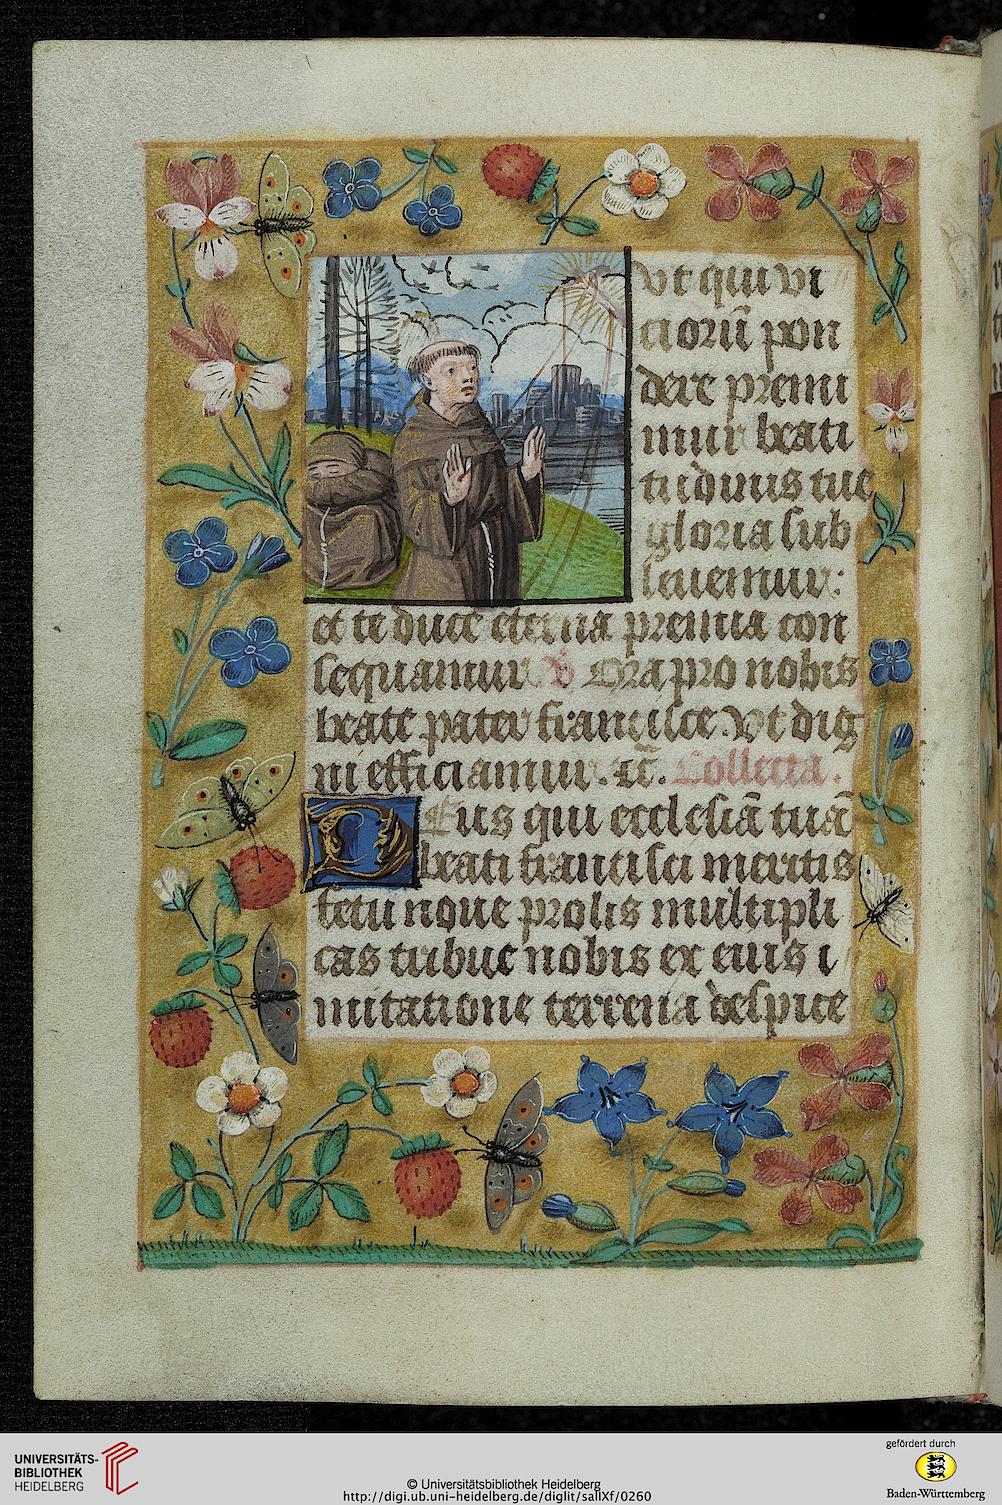 vt qui vi
ciorū pon
dere premi
mur beati
tudinis tue
gloria sub
leuemur:
et te duce eterna premia con
sequamur. V Ora pro nobis
beate pater francisce Vt dig
ni efficiamur. ⁊c̄. Collecta.
Deus qui ecclesiā tuā
beati francisci meritis
fetu noue prolis multipli
cas tribue nobis ex eius i
mitatione terrena despice
UNIVERSITÄTS-
BIBLIOTHEK
HEIDELBERG
© Universitätsbibliothek Heidelberg
http://digi.ub.uni-heidelberg.de/diglit/salIXf/0260
gefördert durch
Baden-Württemberg